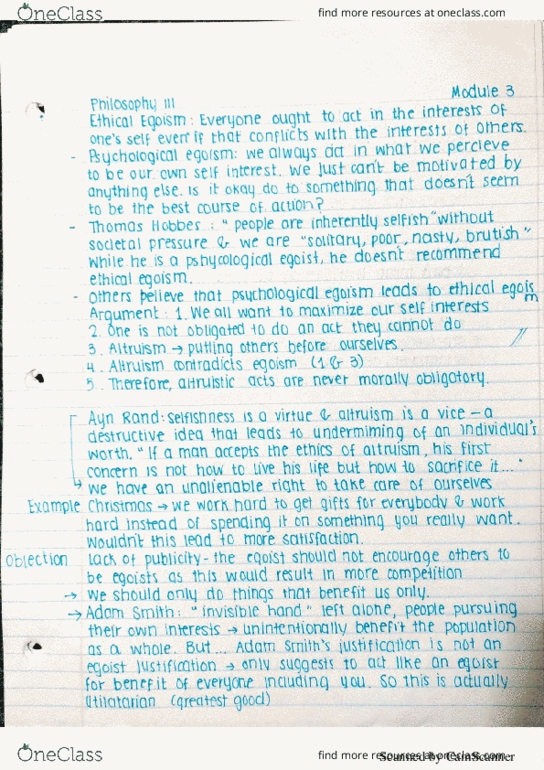 OneClass
find more resources at oneclass.com
Module 3
Philosophy 111
Ethical Egoism: Everyone ought to act in the interests of
one's self even if that conflicts with the interests of others.
- Psychological egoism: we always act in what we percieve
to be our own self interest. We just can't be motivated by
anything else. Is it okay do to something that doesn't seem
to be the best course of action?
- Thomas Hobbes: "people are inherently selfish" without
societal pressure & we are "solitary, poor, nasty, brutish"
While he is a pshycological egoist, he doesn't recommend
ethical egoism.
- others believe that psychological egoism leads to ethical egoism
Argument: 1. We all want to maximize our self interests
2. One is not obligated to do an act they cannot do
3. Altruism → putting others before ourselves.
4. Altruism contradicts egoism (1 & 3)
5. Therefore, altruistic acts are never morally obligatory.
Ayn Rand: selfishness is a virtue & altruism is a vice - a
destructive idea that leads to undermiming of an individual's
worth. "If a man accepts the ethics of altruism, his first
concern is not how to live his life but how to sacrifice it..."
→ we have an unalienable right to take care of ourselves
Example Christmas → we work hard to get gifts for everybody & work
hard instead of spending it on something you really want.
Wouldn't this lead to more satisfaction.
Objection lack of publicity - the egoist should not encourage others to
be egoists as this would result in more competition
→ we should only do things that benefit us only.
→ Adam Smith: "invisible hand" left alone, people pursuing
their own interests → unintentionally benefit the population
as a whole. But... Adam Smith's justification is not an
egoist justification → only suggests to act like an egoist
for benefit of everyone including you. So this is actually
Utilatarian (greatest good)
OneClass
find more resources at oneclass.com
Scanned by CamScanner